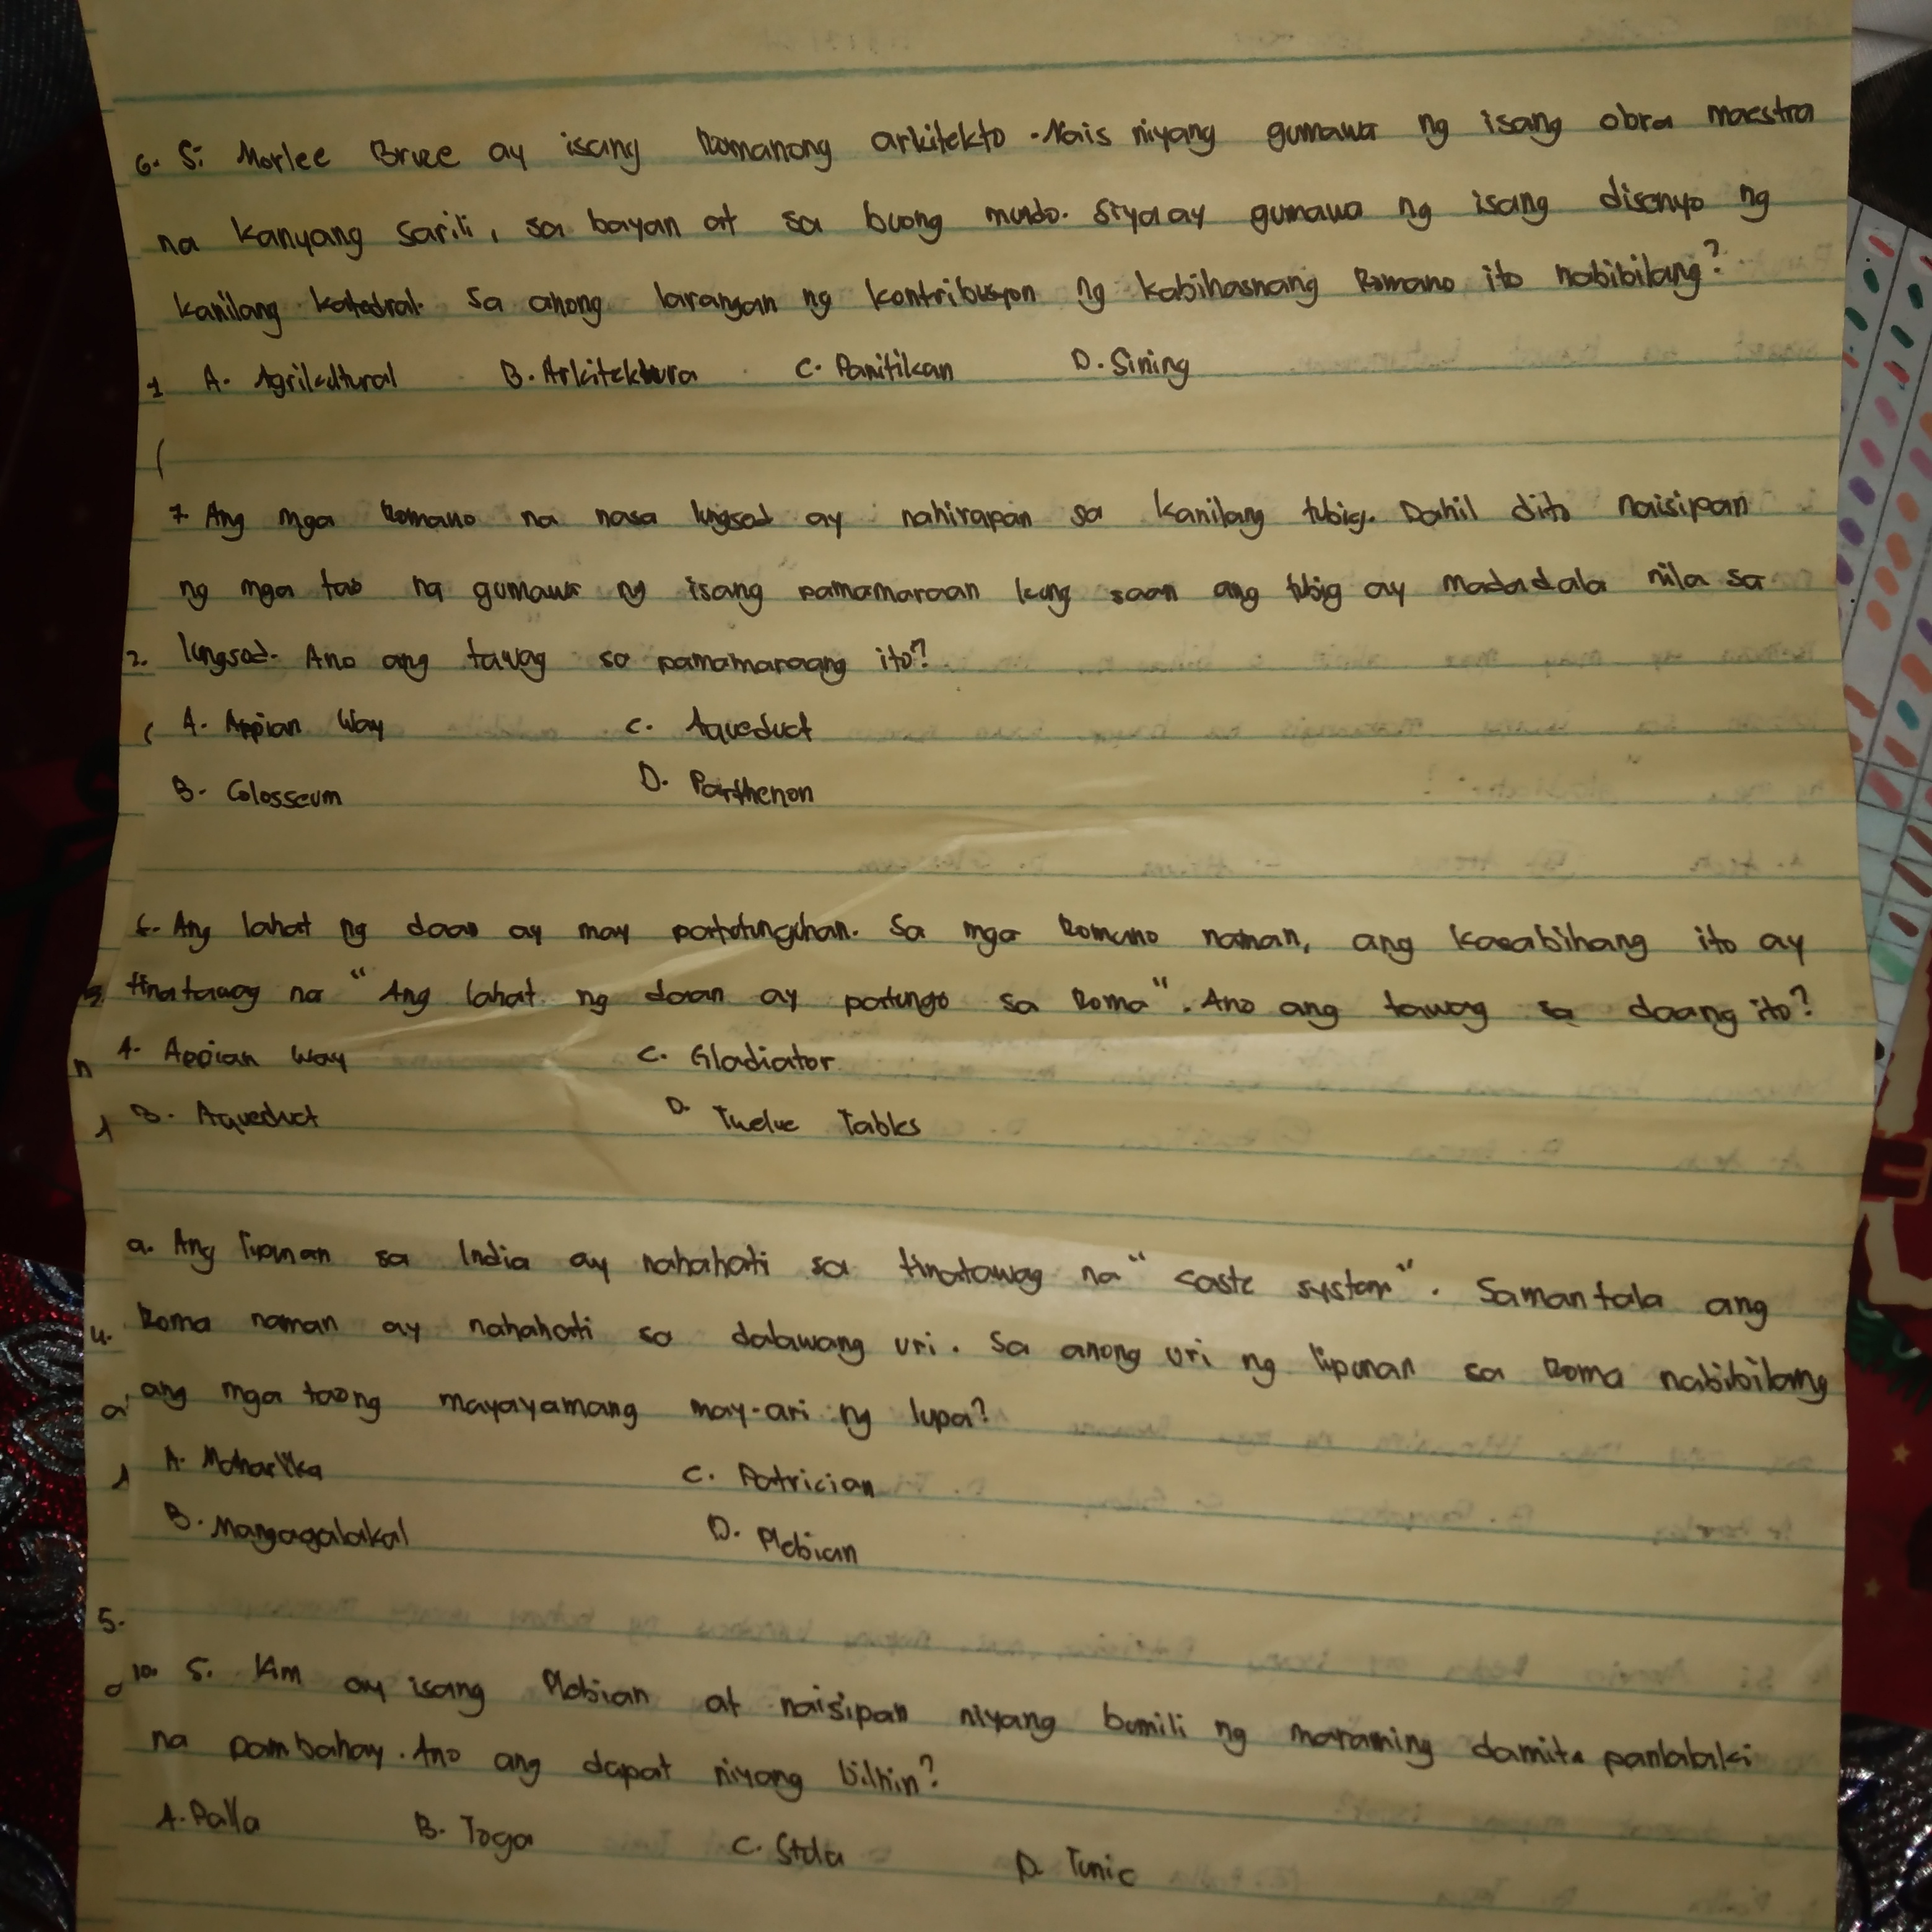 6. Si Morlee Bruce ay isang Romanong arkitekto. Nais niyang gumawa ng isang obra maestra
na kanyang sarili, sa bayan at sa buong mundo. Siya ay gumawa ng isang disenyo ng
kanilang katedral. Sa anong larangan ng kontribusyon ng kabihasnang Romano ito nabibilang?
1 A. Agrikultural B. Arkitektura C. Panitikan D. Sining
(
7. Ang mga Romano na nasa lungsod ay nahirapan sa kanilang tubig. Dahil dito naisipan
ng mga tao na gumawa ng isang pamamaraan kung saan ang tubig ay madadala nila sa
2. lungsod. Ano ang tawag sa pamamaraang ito?
( A. Appian Way C. Aqueduct
B. Colosseum D. Parthenon
8. Ang lahat ng daan ay may patutunguhan. Sa mga Romano naman, ang kasabihang ito ay
3. tinatawag na "Ang lahat ng daan ay patungo sa Roma". Ano ang tawag sa daang ito?
n A. Appian Way C. Gladiator
B. Aqueduct D. Twelve Tables
9. Ang lipunan sa India ay nahahati sa tinatawag na "caste system". Samantala ang
4. Roma naman ay nahahati sa dalawang uri. Sa anong uri ng lipunan sa Roma nabibilang
a ang mga taong mayayamang may-ari ng lupa?
A. Maharlika C. Patrician
B. Mangagalakal D. Plebian
5.
10. Si Kim ay isang Plebian at naisipan niyang bumili ng maraming damit panlalaki
na pambahay. Ano ang dapat niyang bilhin?
A. Palla B. Toga C. Stola D. Tunic